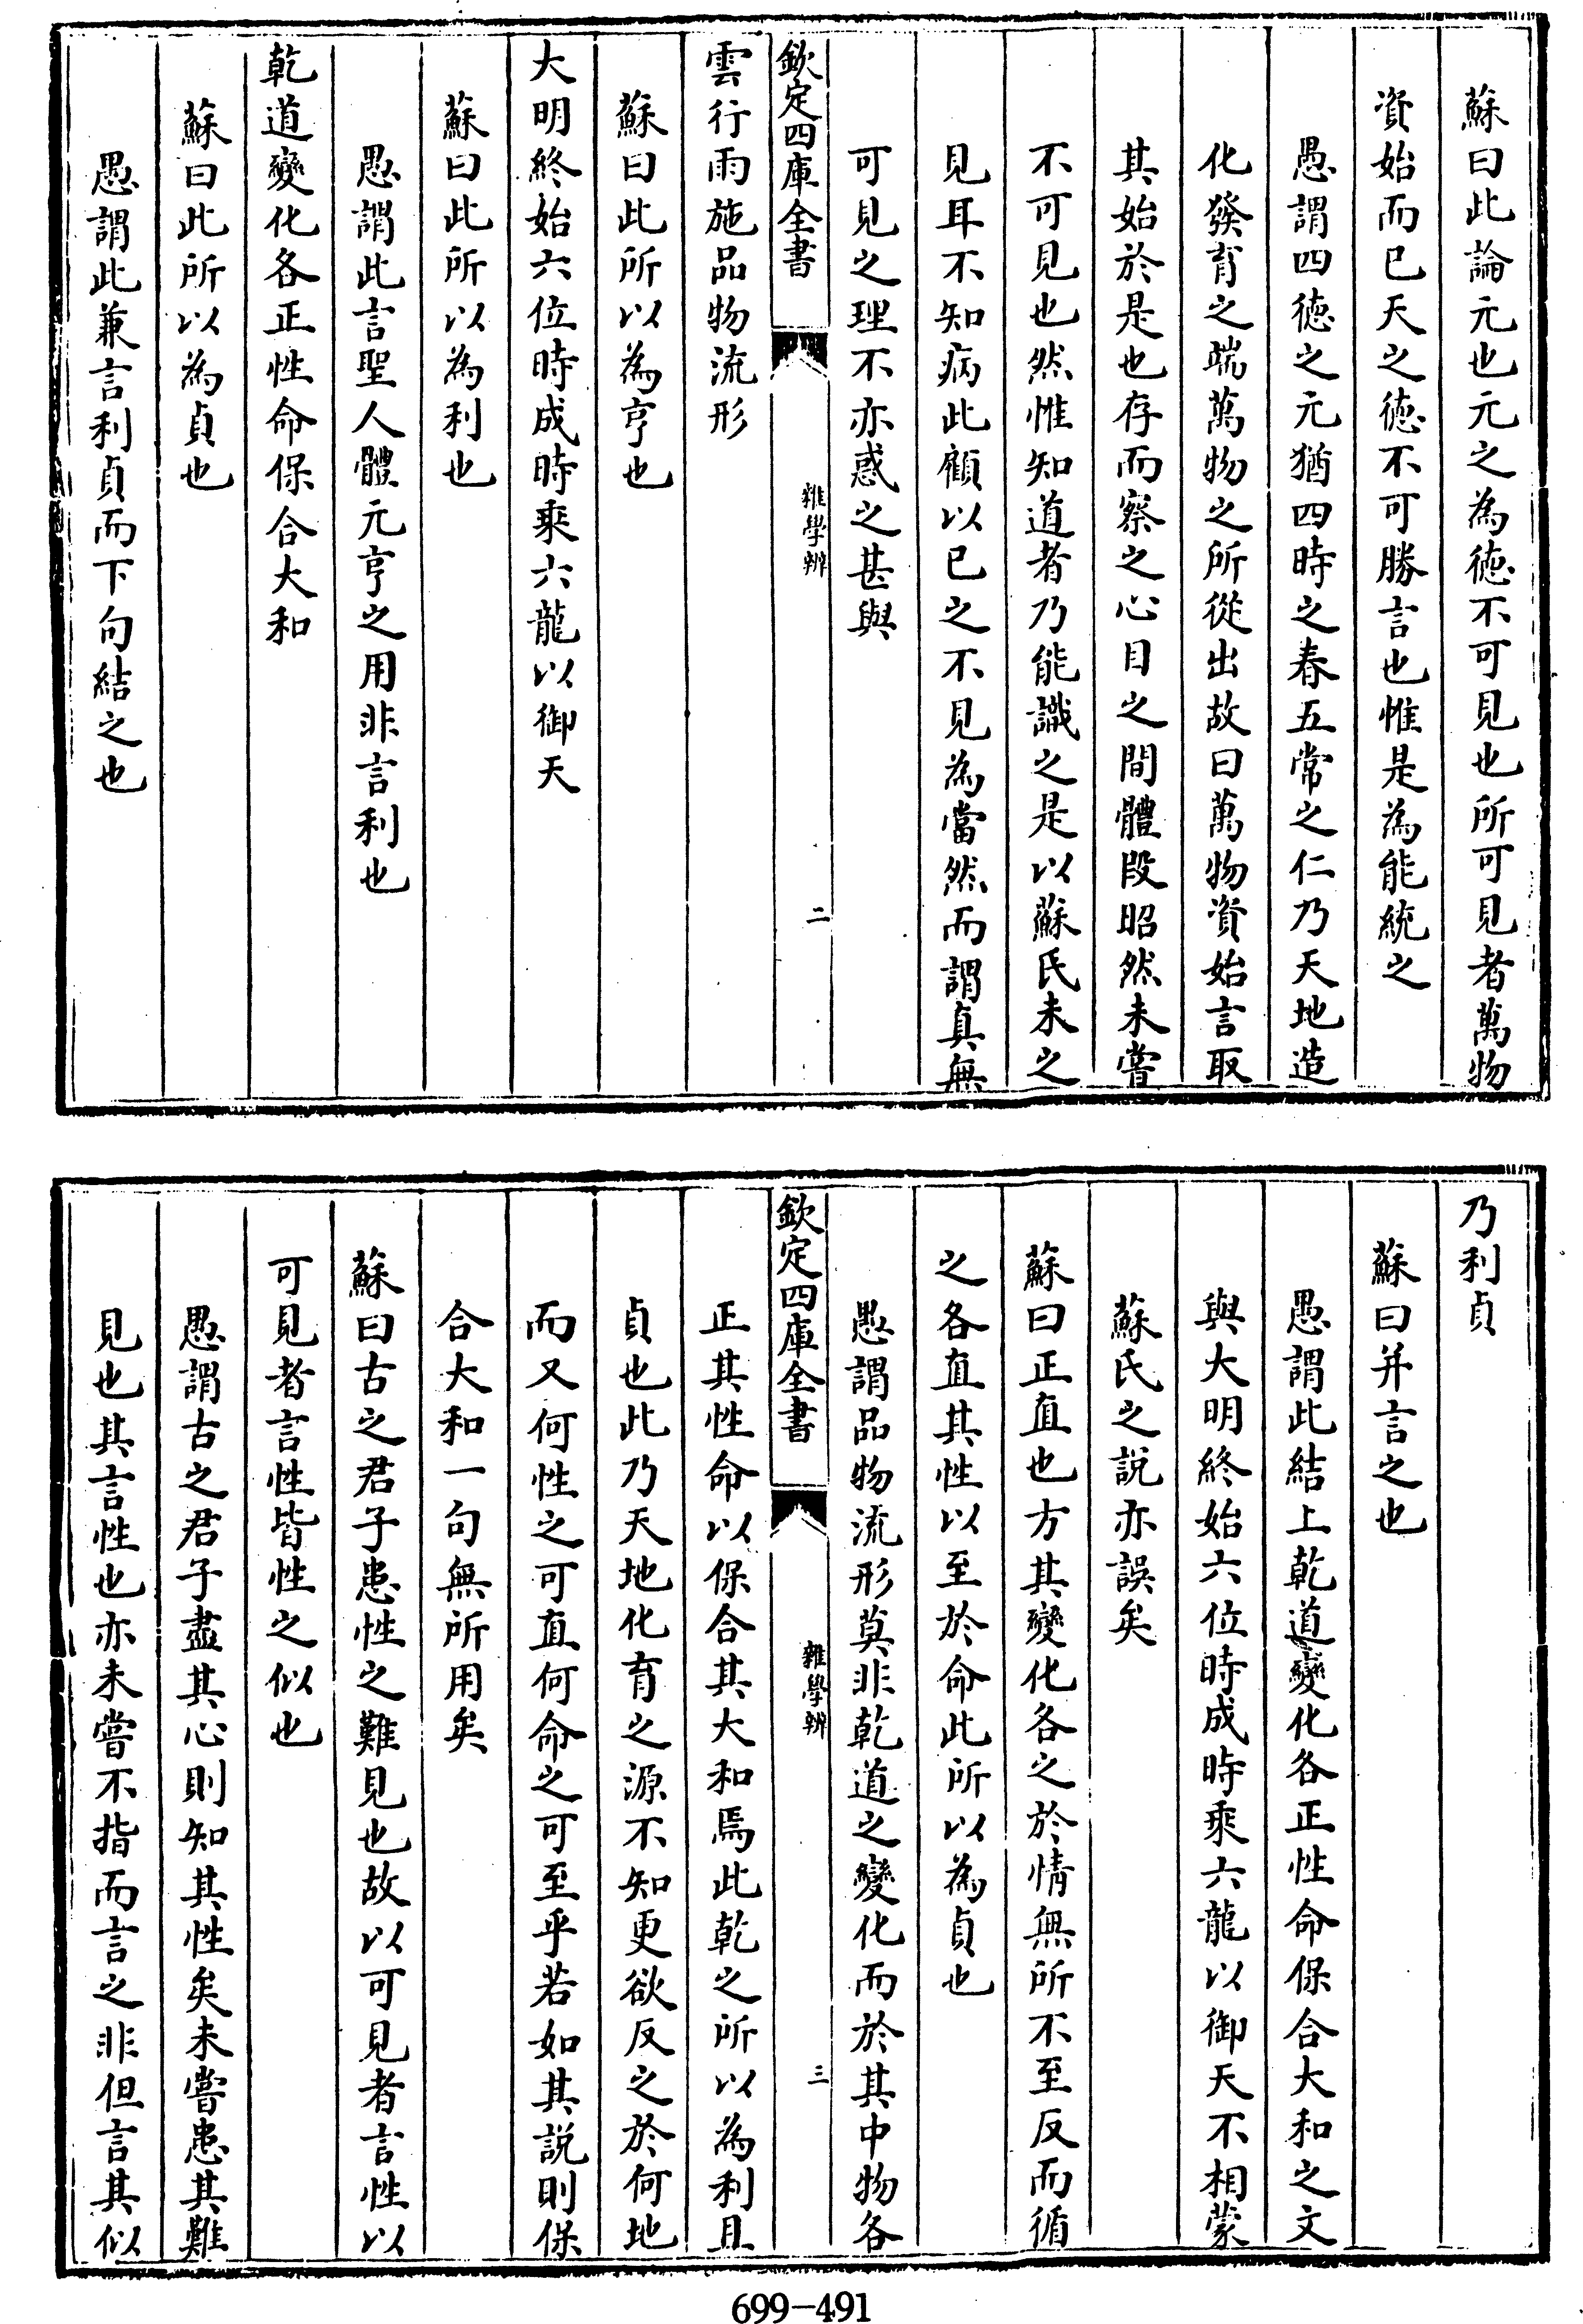 蘇曰此論元也元之為徳不可見也所可見者萬物
資始而已天之徳不可勝言也惟是為能統之
愚謂四徳之元猶四時之春五常之仁乃天地造
化發育之端萬物之所從出故曰萬物資始言取
其始於是也存而察之心目之間體段昭然未嘗
不可見也然惟知道者乃能識之是以蘇氏未之
見耳不知病此顧以已之不見為當然而謂真無
可見之理不亦惑之甚與
欽定四庫全書
雜學辨
二
雲行雨施品物流形
蘇曰此所以為亨也
大明終始六位時成時乘六龍以御天
蘇曰此所以為利也
愚謂此言聖人體元亨之用非言利也
乾道變化各正性命保合大和
蘇曰此所以為貞也
愚謂此兼言利貞而下句結之也
乃利貞
蘇曰并言之也
愚謂此結上乾道變化各正性命保合大和之文
與大明終始六位時成時乘六龍以御天不相蒙
蘇氏之說亦誤矣
蘇曰正直也方其變化各之於情無所不至反而循
之各直其性以至於命此所以為貞也
愚謂品物流形莫非乾道之變化而於其中物各
欽定四庫全書
雜學辨
三
正其性命以保合其大和焉此乾之所以為利且
貞也此乃天地化育之源不知更欲反之於何地
而又何性之可直何命之可至乎若如其說則保
合大和一句無所用矣
蘇曰古之君子患性之難見也故以可見者言性以
可見者言性皆性之似也
愚謂古之君子盡其心則知其性矣未嘗患其難
見也其言性也亦未嘗不指而言之非但言其似
699-491